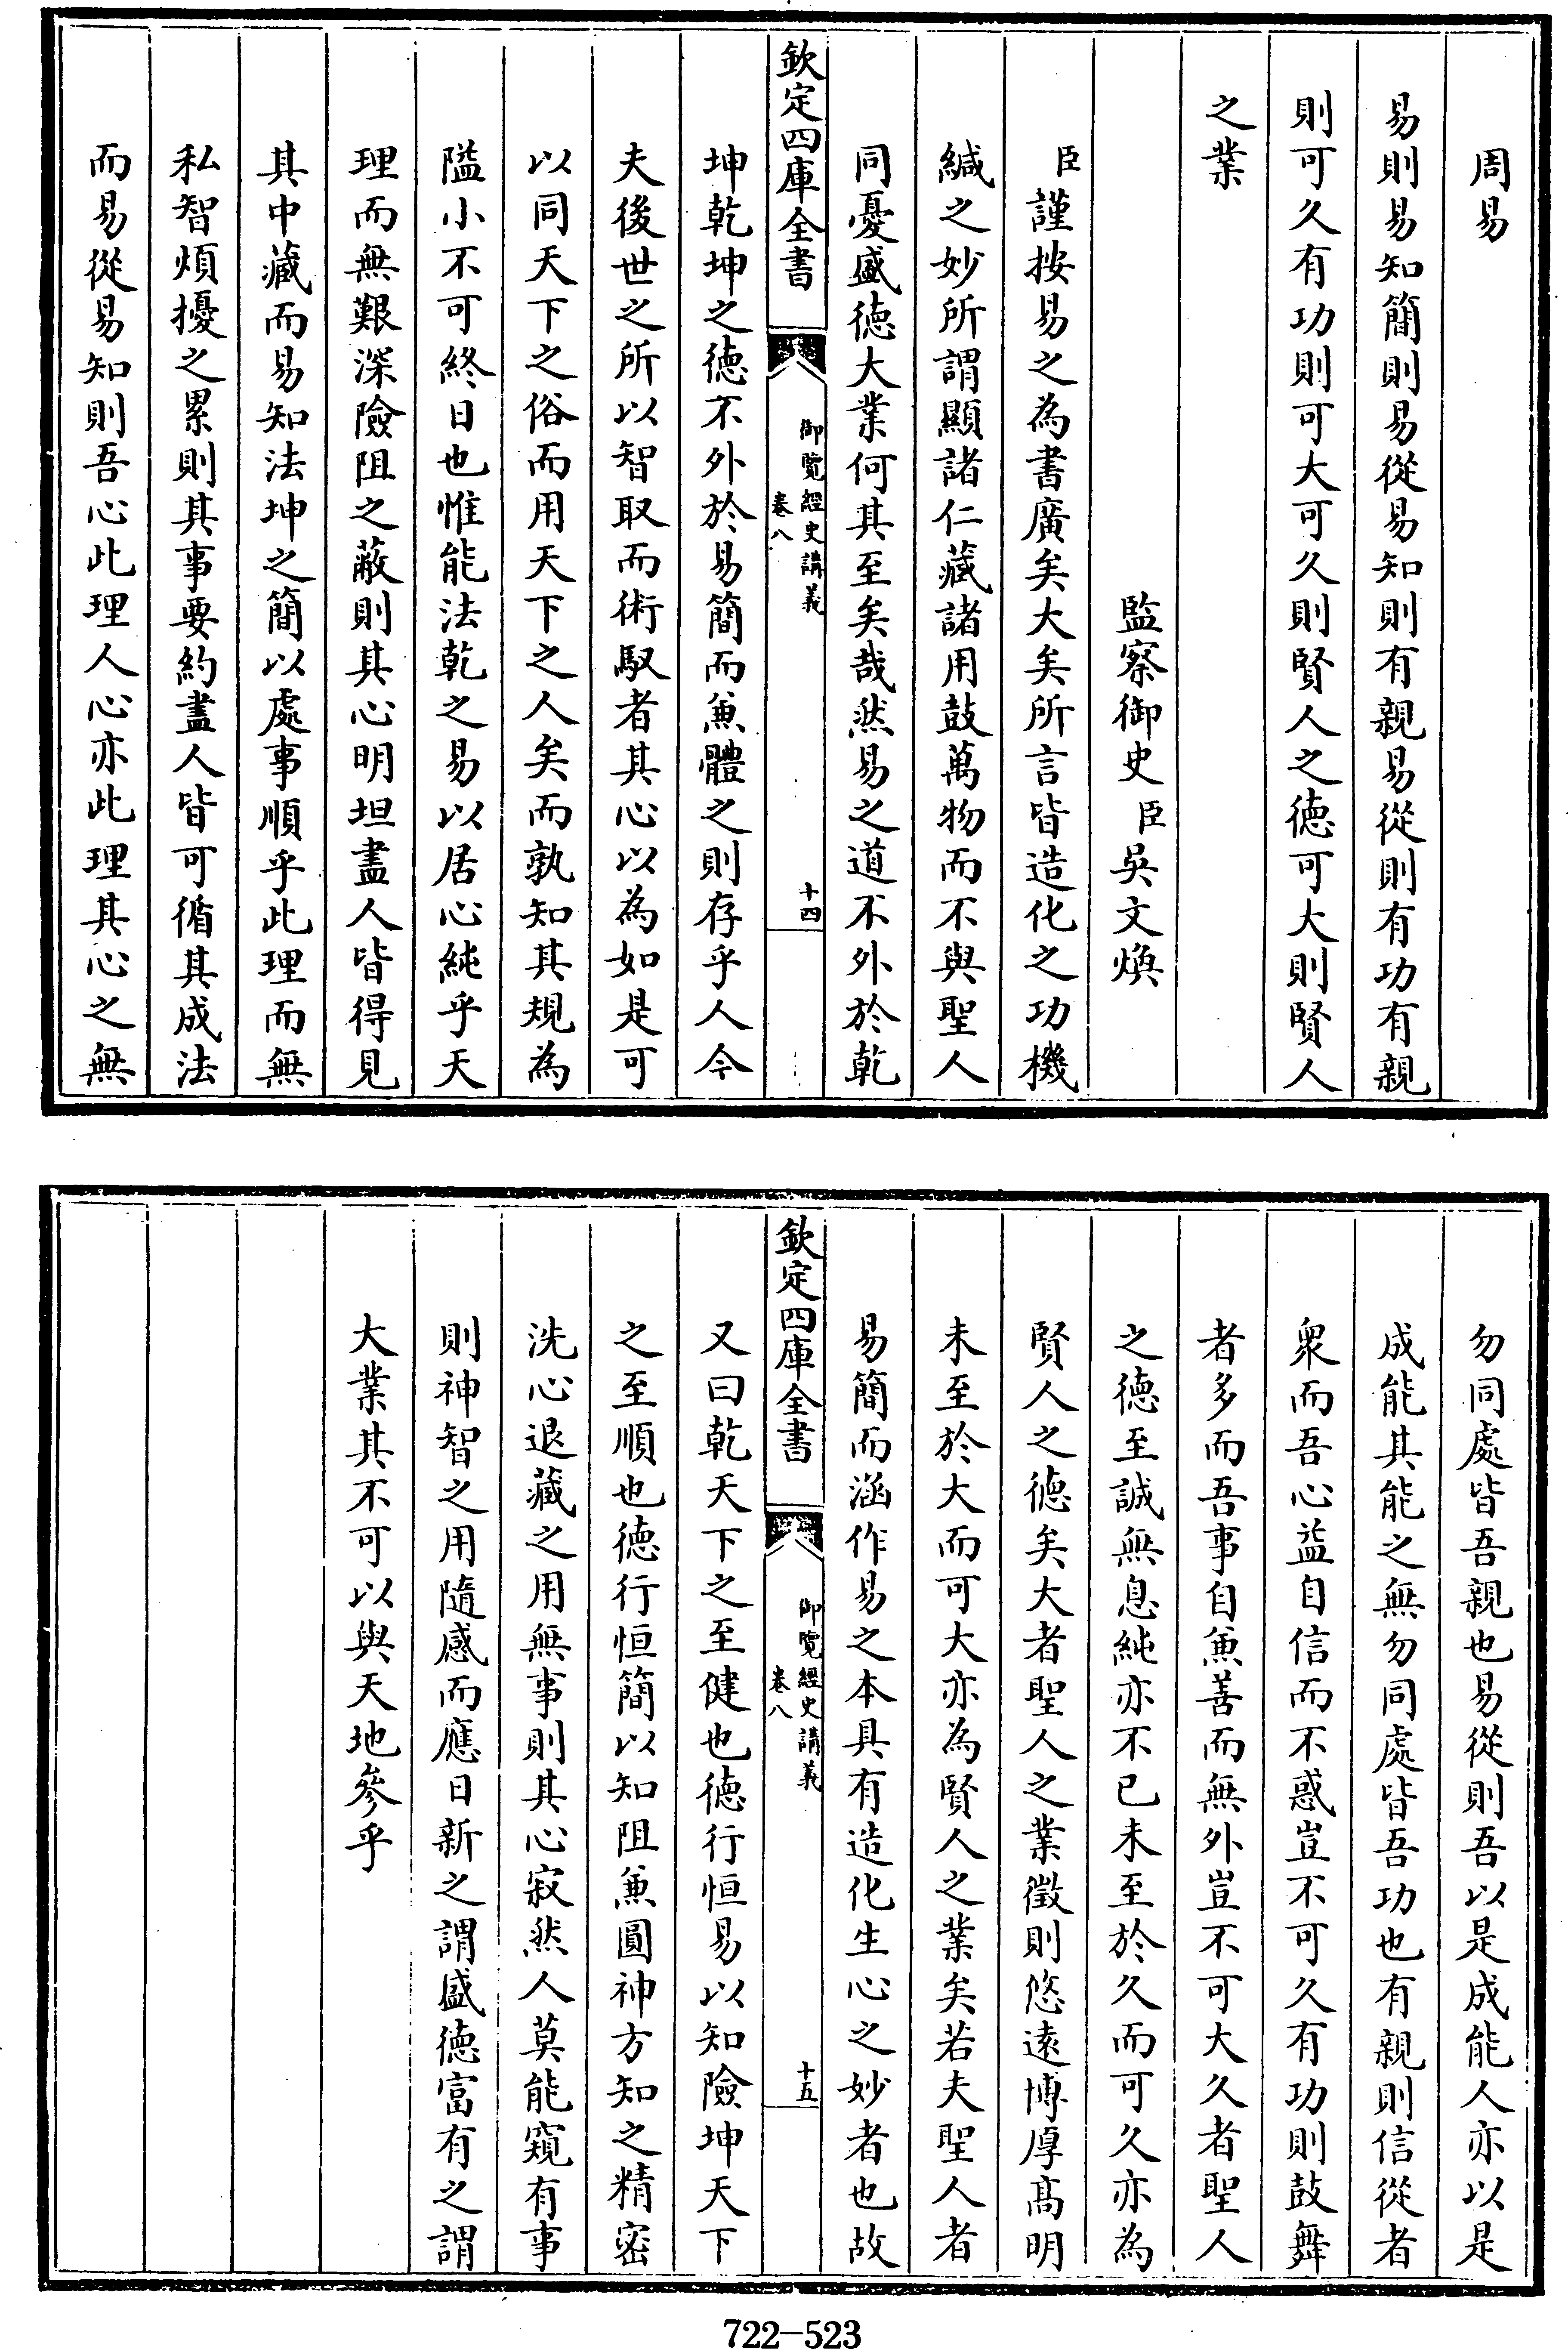 周易
易則易知簡則易從易知則有親易從則有功有親
則可久有功則可大可久則賢人之德可大則賢人
之業
監察御史臣吳文煥
臣謹按易之為書廣矣大矣所言皆造化之功機
緘之妙所謂顯諸仁藏諸用鼓萬物而不與聖人
同憂盛德大業何其至矣哉然易之道不外於乾
欽定四庫全書
御覽經史講義
卷八
十四
坤乾坤之德不外於易簡而兼體之則存乎人今
夫後世之所以智取而術馭者其心以為如是可
以同天下之俗而用天下之人矣而孰知其規為
隘小不可終日也惟能法乾之易以居心純乎天
理而無艱深險阻之蔽則其心明坦盡人皆得見
其中藏而易知法坤之簡以處事順乎此理而無
私智煩擾之累則其事要約盡人皆可循其成法
而易從易知則吾心此理人心亦此理其心之無
勿同處皆吾親也易從則吾以是成能人亦以是
成能其能之無勿同處皆吾功也有親則信從者
衆而吾心益自信而不惑豈不可久有功則鼓舞
者多而吾事自兼善而無外豈不可大久者聖人
之德至誠無息純亦不已未至於久而可久亦為
賢人之德矣大者聖人之業徵則悠遠博厚高明
未至於大而可大亦為賢人之業矣若夫聖人者
易簡而涵作易之本具有造化生心之妙者也故
欽定四庫全書
御覽經史講義
卷八
十五
又曰乾天下之至健也德行恒易以知險坤天下
之至順也德行恒簡以知阻兼圓神方知之精密
洗心退藏之用無事則其心寂然人莫能窺有事
則神智之用隨感而應日新之謂盛德富有之謂
大業其不可以與天地參乎
722-523